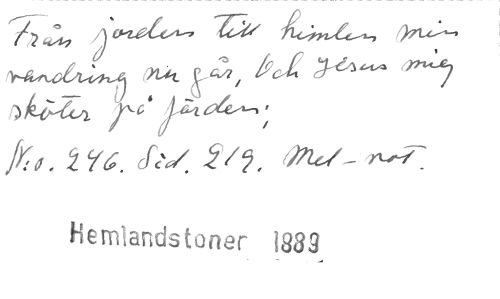 Från jorden till himlen min
vandring nu går, Och Jesus mig
sköter på färden;
N:o. 246. Sid. 219. Mel-not.
Hemlandstoner 1889